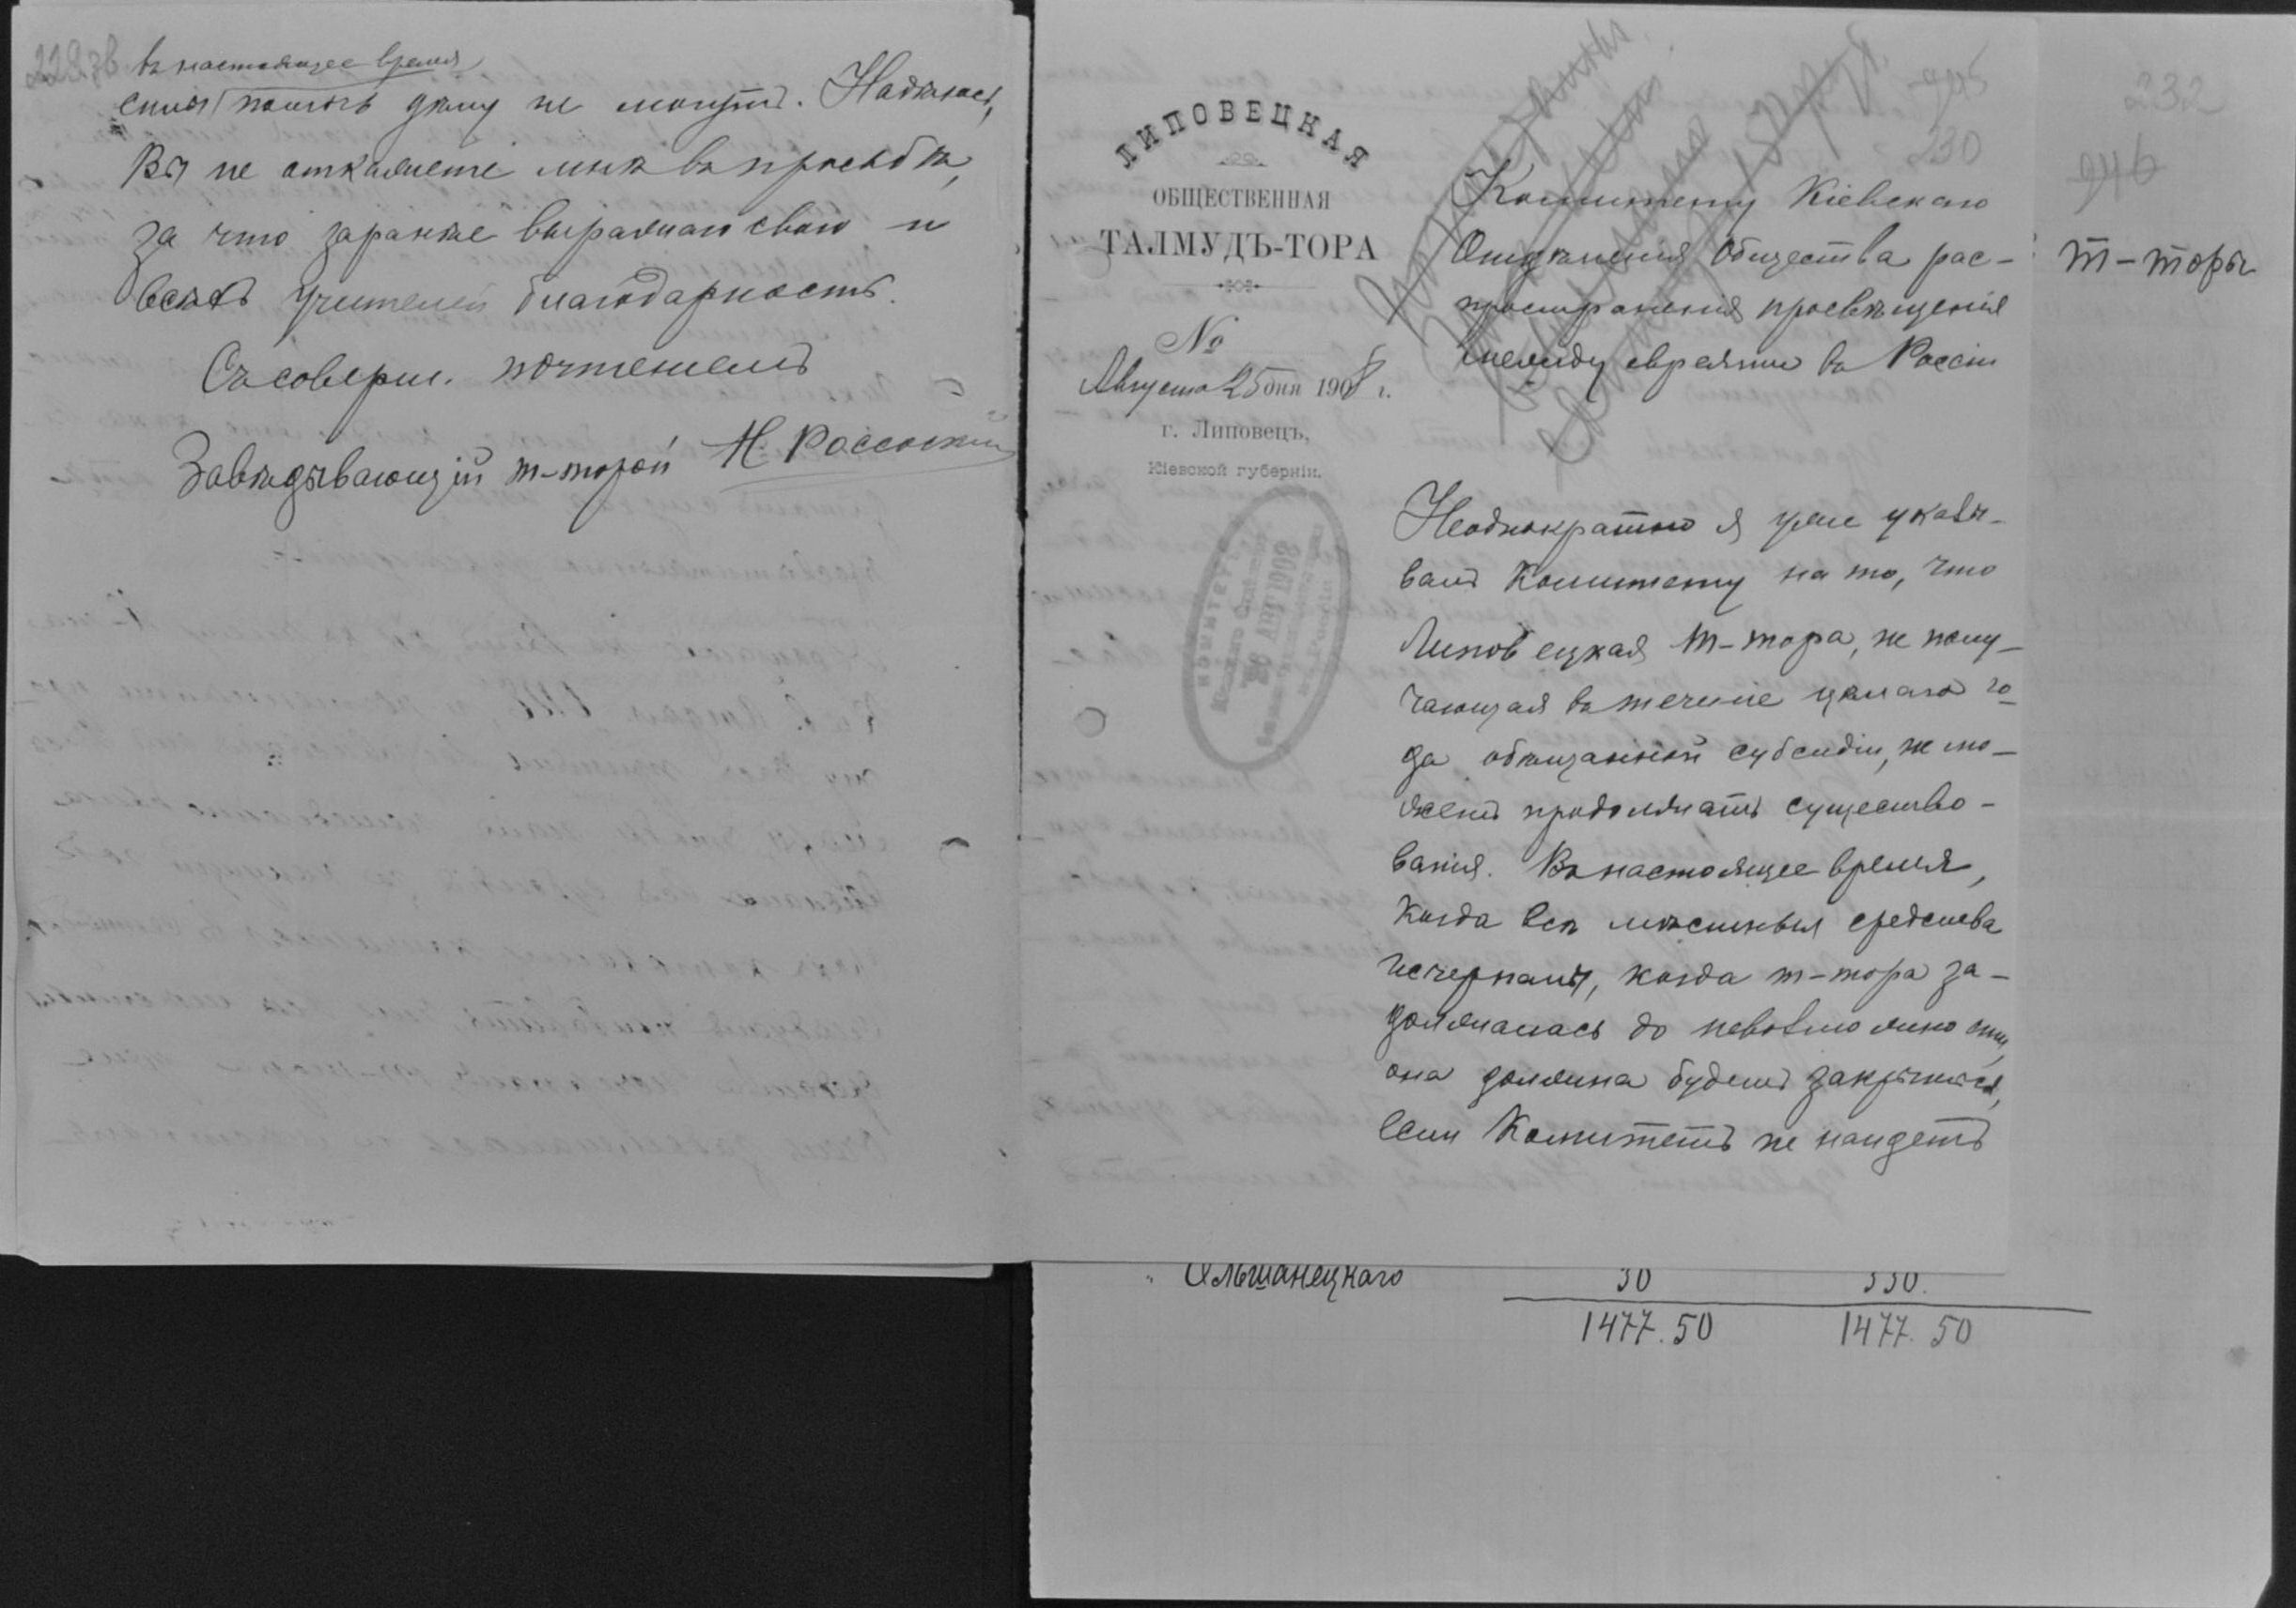 229 зв
въ настоящее время
силы помочь дѣлу не могутъ. Надѣюсь,
Вы не откажете мнѣ въ просьбѣ,
за что заранѣе выражаю свою и
всѣхъ учителей благодарность.
Съ соверш. почтеніемъ
Завѣдывающій т-торой Н. Россоскій
ЛИПОВЕЦКАЯ
ОБЩЕСТВЕННАЯ
ТАЛМУДЪ-ТОРА
№
Августа 25 дня 1908 г.
г. Липовецъ,
Кіевской губерніи.
26 АВГ. 1908
945
230
Комитету Кіевскаго
Отдѣленія Общества рас-
пространенія просвѣщенія
между евреями въ Россіи
Неоднократно я уже указы-
валъ Комитету на то, что
Липовецкая т-тора, не полу-
чающая въ теченіе цѣлаго го-
да обѣщанной субсидіи, не мо-
жетъ продолжать существо-
ванія. Въ настоящее время,
когда всѣ мѣстныя средства
исчерпаны, когда т-тора за-
должалась до невозможности,
она должна будетъ закрыться,
если Комитетъ не найдетъ
232
946
т-торы
Ольшанецкаго 30 330.
1477.50 1477.50